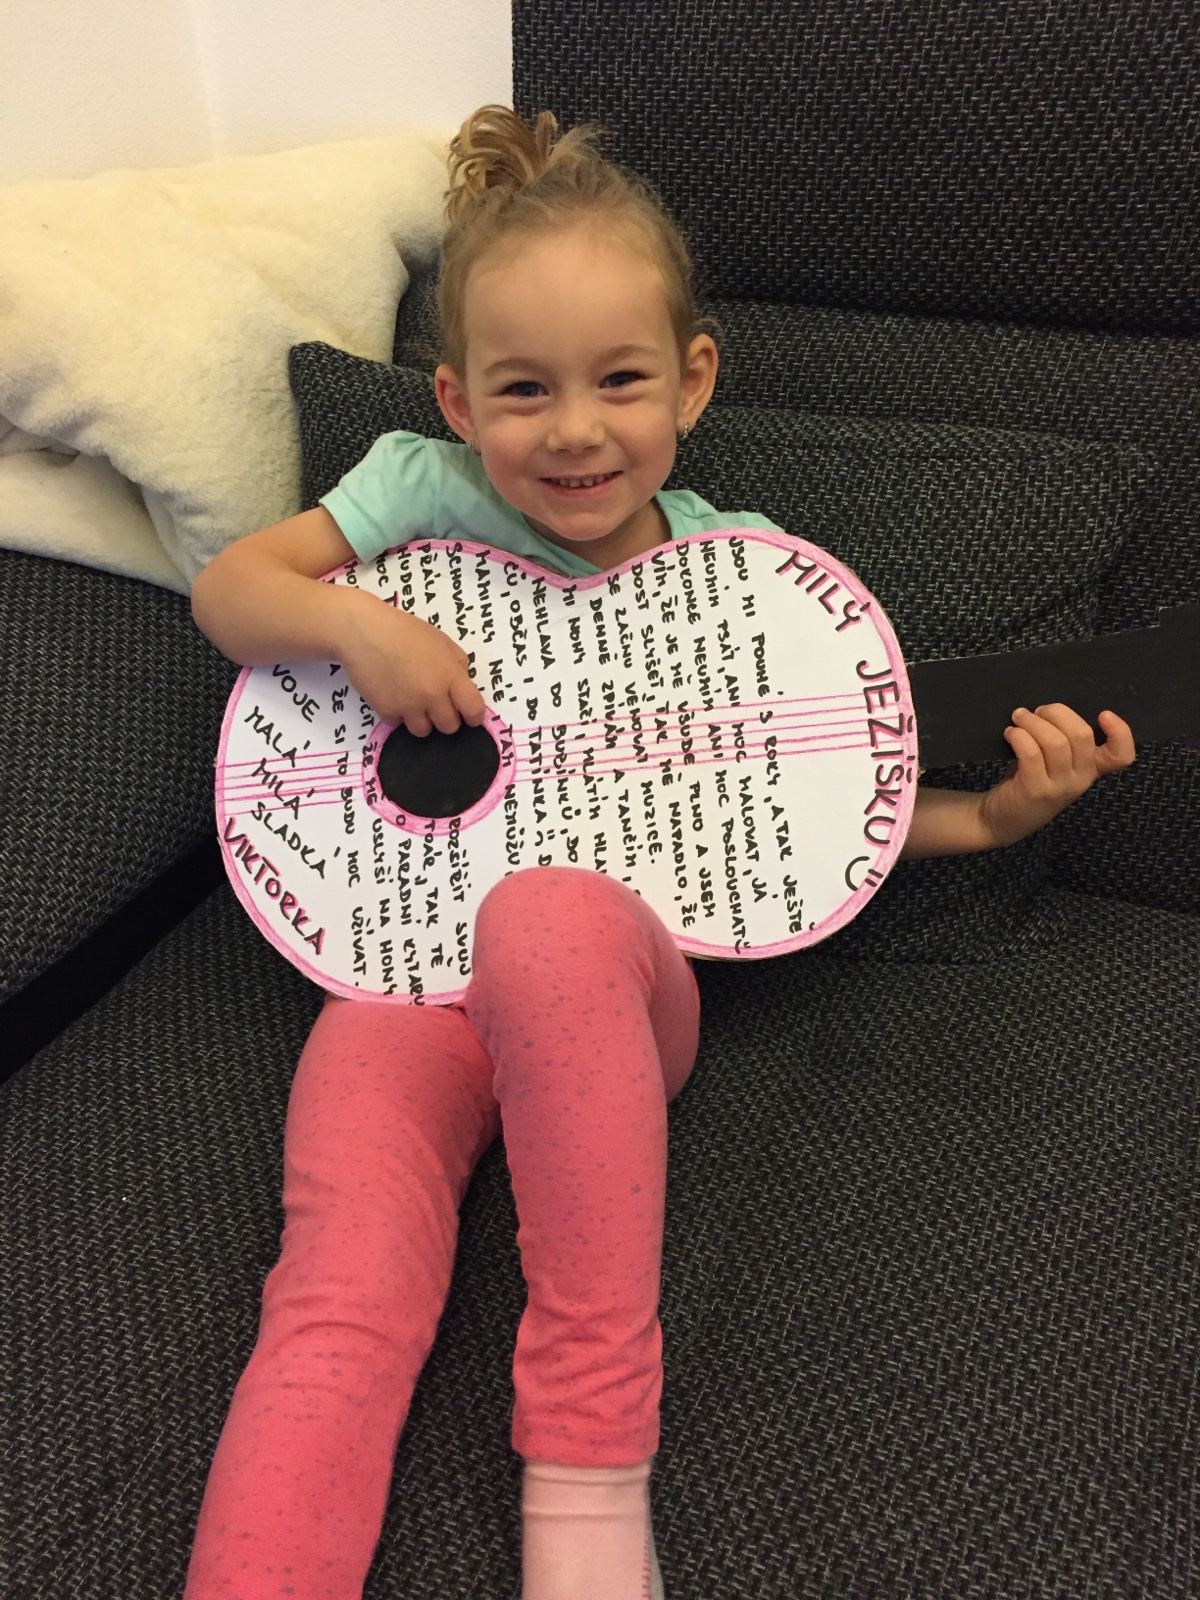 MILÝ JEŽÍŠKU
JSOU MI POUHÉ 3 ROKY, A TAK JEŠTĚ
NEUMÍM PSÁT, ANI MOC MALOVAT, JÁ
DOKONCE NEUMÍM ANI MOC POSLOUCHAT
VÍM, ŽE JE MĚ VŠUDE PLNO A JSEM
DOST SLYŠET, TAK MĚ NAPADLO, ŽE
SE ZAČNU VĚNOVAT MUZICE.
DENNĚ ZPÍVÁM A TANČÍM,
MI NONY STAČÍ MLÁTÍM HLA
NEHLAVA DO BUBÍNKŮ, DO
ČŮ, OBČAS I DO TATÍNKA
MAMINKY NEE, TAM NEMŮŽU
SCHOVÁVÁ ROZŠÍŘIT SVŮJ
PŘÁLA TAK TĚ
HUDEB O PARÁDNÍ KYTARU
MOC ŽE MĚ USLYŠÍ NA HONY
A ŽE SI TO BUDU MOC UŽÍVAT.
MALÁ
MILÁ
SLADKÁ
VIKTORKA